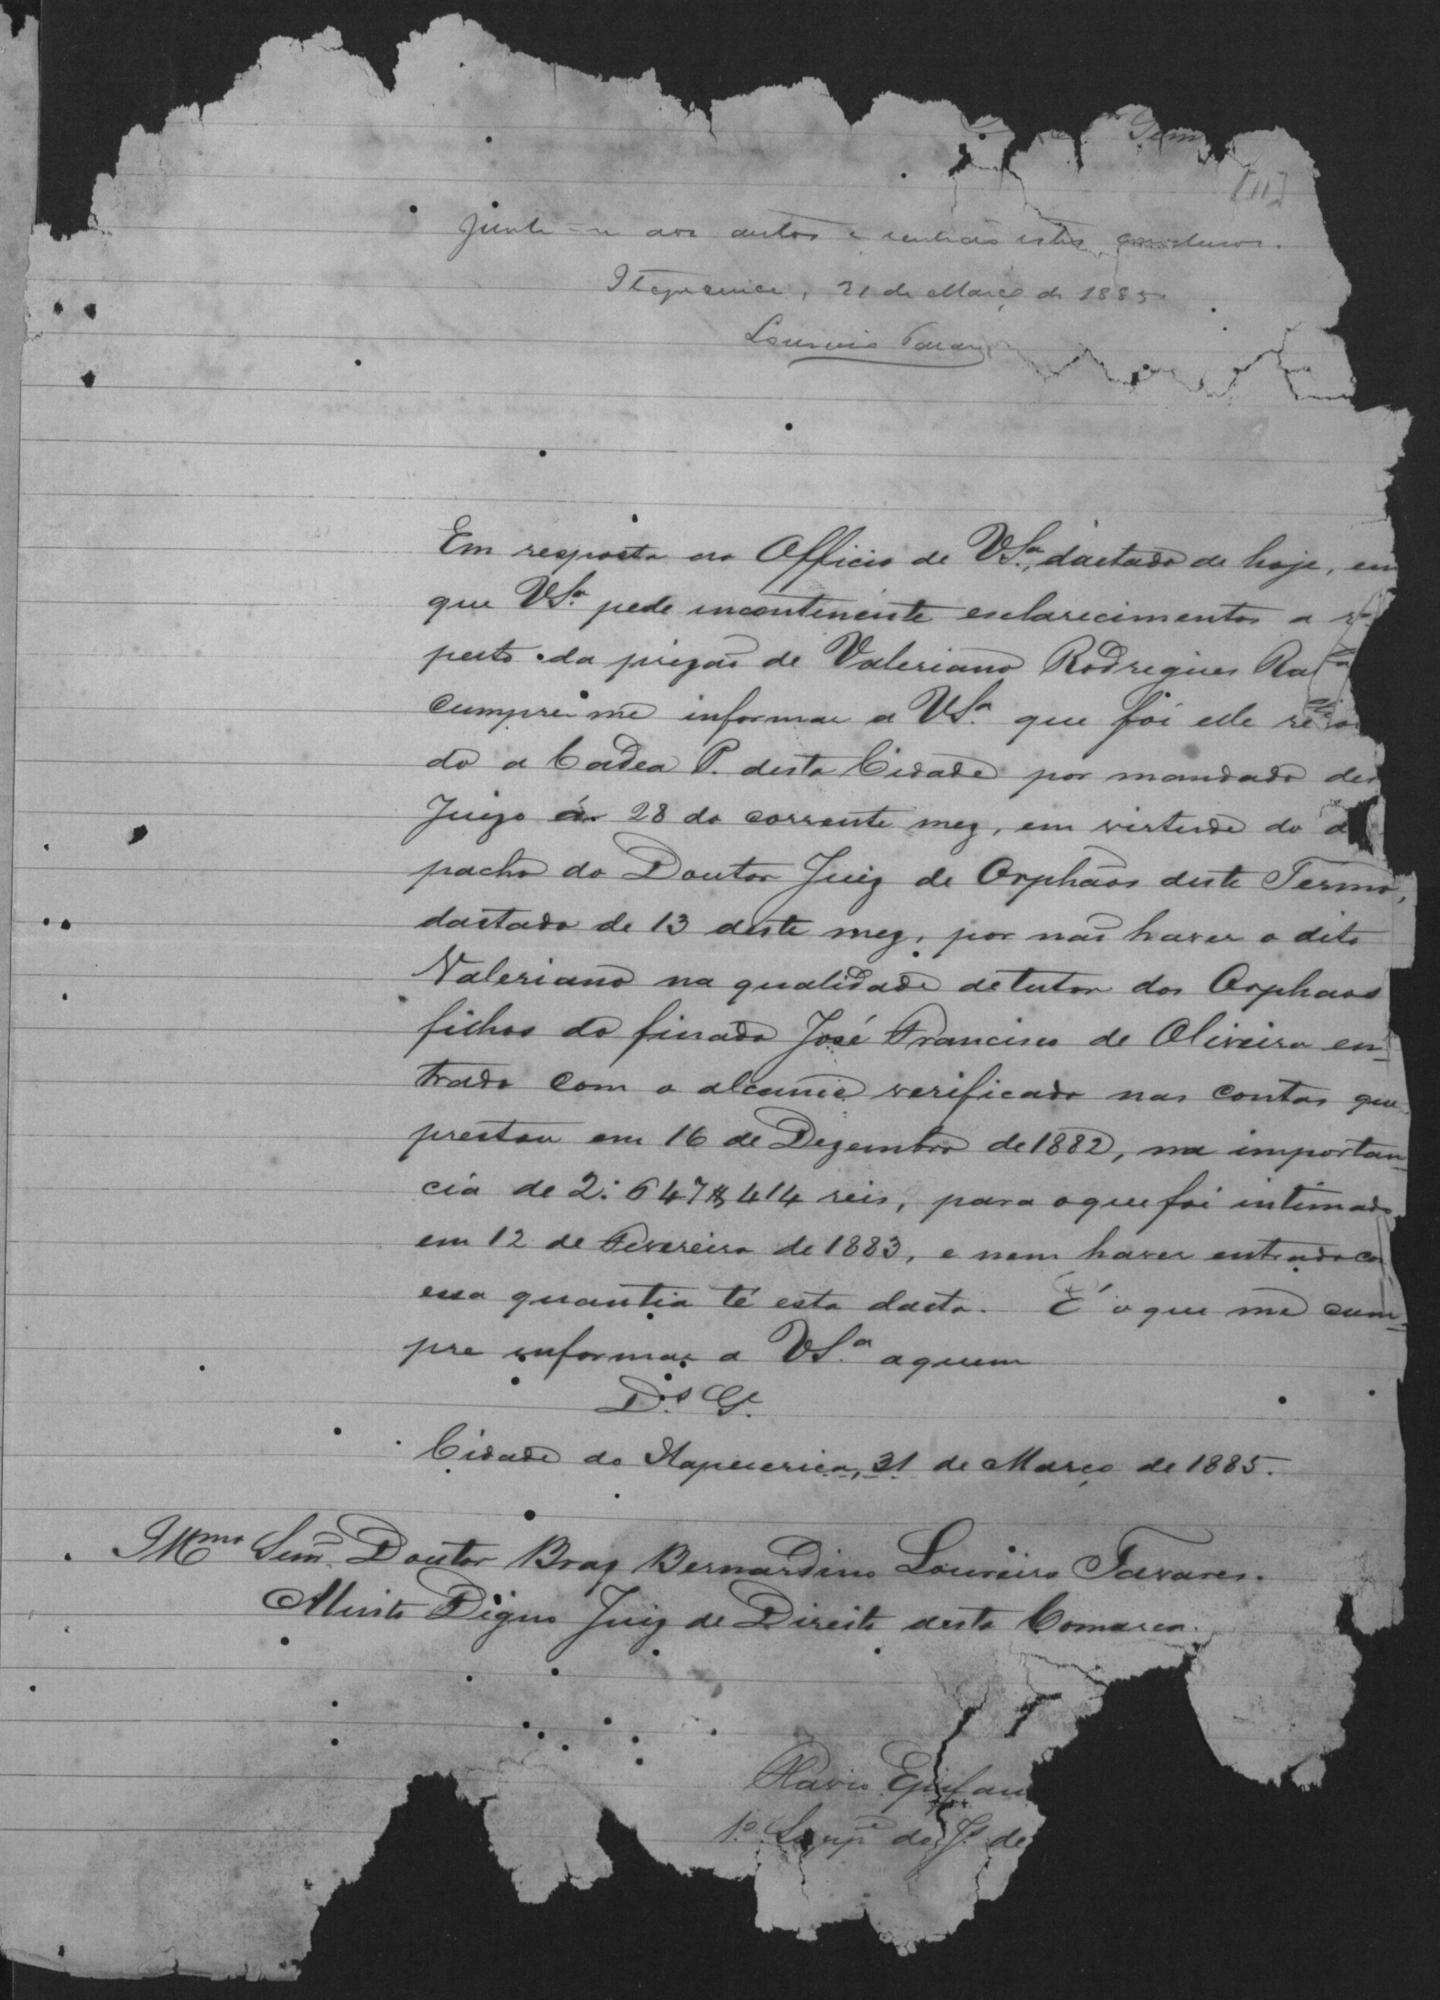 [11]
Junte-se aos autos e venhão estes conclusos.
Itapecerica, 31 de Março de 1885
Loureiro Tavares
Em resposta ao Officio de VSª, dactado de hoje, em
que VSª pede incontinente esclarecimentos a
peito da prizão de Valeriano Rodrigues
cumpre-me informar a VSª que foi elle
do a Cadea P. desta Cidade por mandado
Juizo á 28 do corrente mez, em virtude do
pacho do Doutor Juiz de Orphãos deste Termo,
dactado de 13 deste mez, por não haver o dito
Valeriano na qualidade de tutor dos Orphaos
filhos do finado José Francisco de Oliveira en=
trado com o alcance verificado nas contas que
prestou em 16 de Dezembro de 1882, na importan=
cia de 2:647$414 reis, para o que foi intimado
em 12 de Fevereiro de 1883, e nem haver entrado
essa quantia té esta dacta. É o que me cum=
pre informar a VSª aquem
D.s G.e
Cidade do Itapecerica, 31 de Março de 1885.
Illmo Senr. Doutor Braz Bernardino Loureiro Tavares.
Muito Digno Juiz de Direito desta Comarca.
Flavio Epifan
1º do J. de